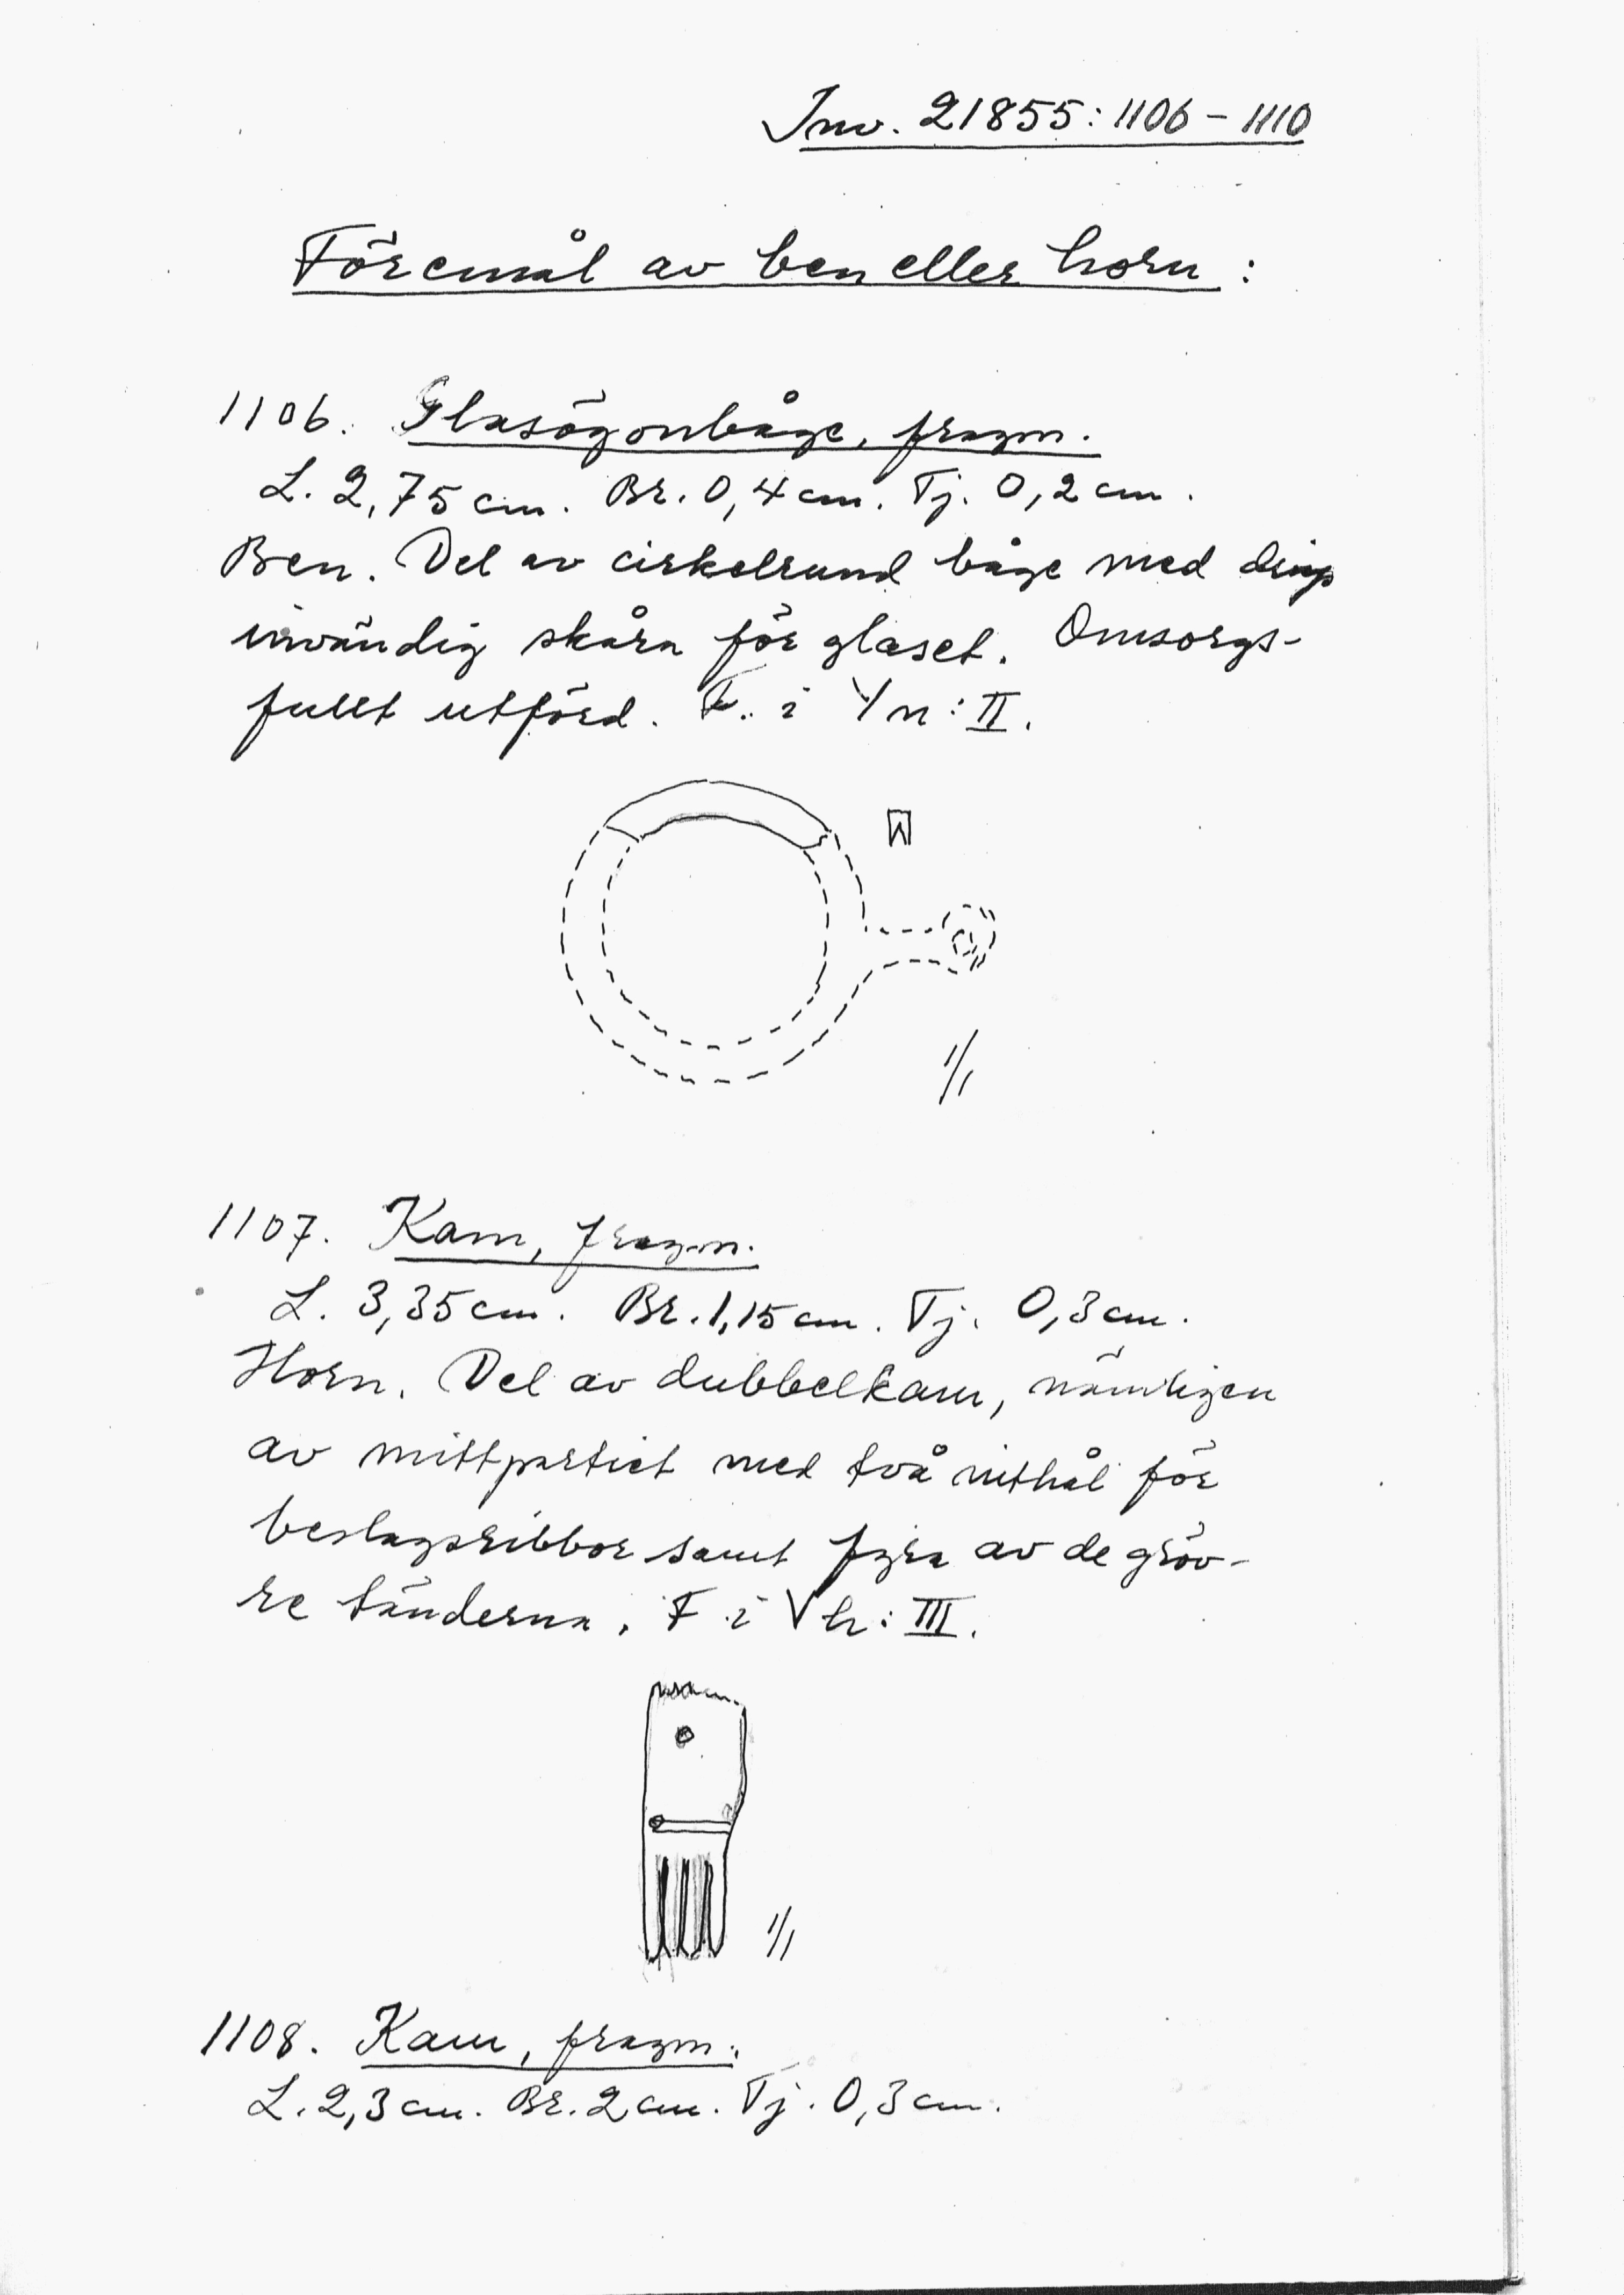 Inv. 21855:1106 – 1110
Föremål av ben eller horn:
1106. Glasögonbåge, fragm.
L. 2,75 cm. Br. 0,4 cm. Tj. 0,2 cm.
Ben. Del av cirkelrund båge med djup
invändig skåra för glaset. Omsorgs-
fullt utförd. F. i V n: II.
1/1
1107. Kam, fragm.
L. 3,35 cm. Br. 1,15 cm. Tj. 0,3 cm.
Horn. Del av dubbelkam, nämligen
av mittpartiet med två nithål för
beslagsribbor samt fyra av de gröv-
re tänderna. F i V h: III.
1/1
1108. Kam, fragm.
L. 2,3 cm. Br. 2 cm. Tj. 0,3 cm.